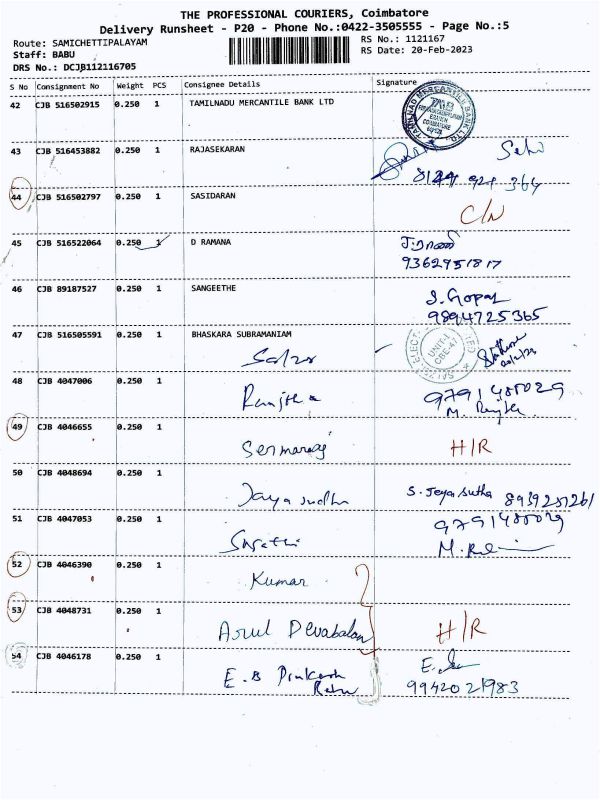 THE PROFESSIONAL COURIERS, Coimbatore
Delivery Runsheet - P20 - Phone No.:0422-3505555 - Page No.:5
Route: SAMICHETTIPALAYAM
RS No.: 1121167
Staff: BABU
RS Date: 20-Feb-2023
DRS No.: DCJB112116705
S No Consignment No Weight PCS Consignee Details Signature
42 CJB 516502915 0.250 1 TAMILNADU MERCANTILE BANK LTD
TAMILNAD MERCANTILE BANK LTD.
TMB
43 CJB 516453882 0.250 1 RAJASEKARAN
44 CJB 516502797 0.250 1 SASIDARAN
C/N
45 CJB 516522064 0.250 1 D RAMANA
9362951817
46 CJB 89187527 0.250 1 SANGEETHE
J. Gopal
9894725365
47 CJB 516505591 0.250 1 BHASKARA SUBRAMANIAM
UNIT-I
CBE-47
48 CJB 4047006 0.250 1 Ranjitha
49 CJB 4046655 0.250 1 H/R
50 CJB 4048694 0.250 1 Jaya sudha S. Jeya Sutha
51 CJB 4047053 0.250 1
52 CJB 4046390 0.250 1 Kumar
53 CJB 4048731 0.250 1 Arul Devabalan H/R
54 CJB 4046178 0.250 1
9942021983